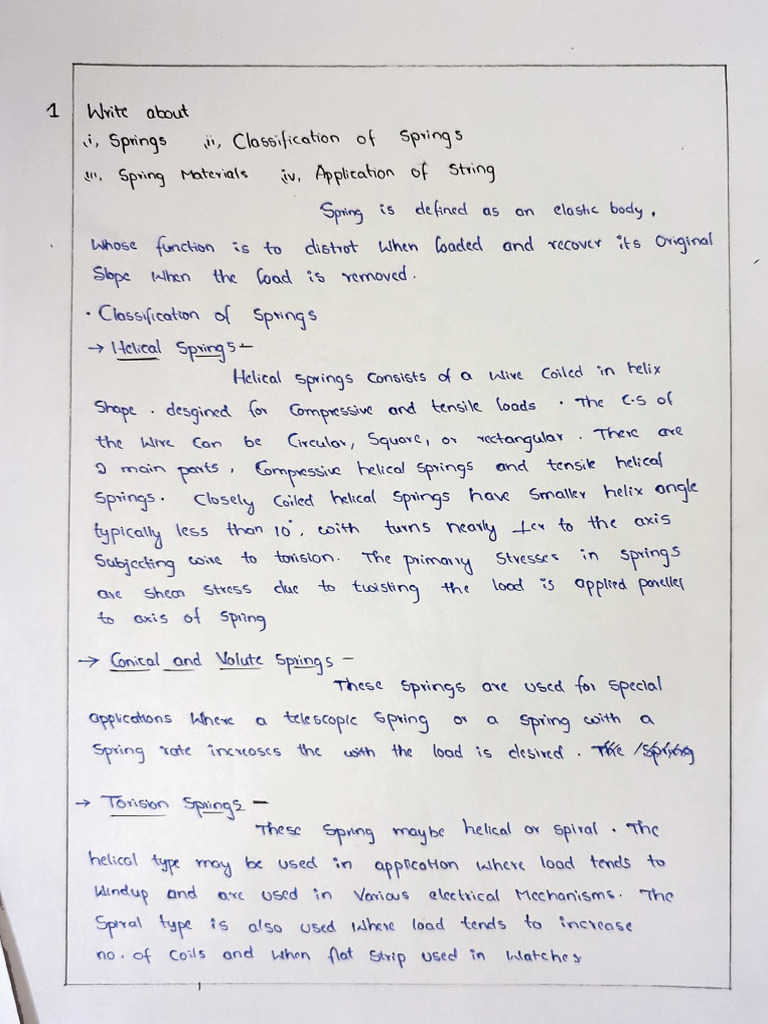 1 Write about
i, Springs ii, Classification of Springs
iii. Spring Materials iv, Application of String
Spring is defined as an elastic body,
Whose function is to distrot when loaded and recover its Original
Slope when the load is removed.
• Classification of Springs
→ Helical Springs -
Helical springs consists of a wire coiled in helix
Shape. desgined for compressive and tensile loads. The C.S of
the wire can be Circular, Square, or rectangular. There are
2 main parts, Compressive helical springs and tensile helical
Springs. Closely coiled helical springs have smaller helix angle
typically less than 10°, with turns nearly ⊥er to the axis
Subjecting wire to torision. The primary stresses in springs
are shear stress due to twisting the load is applied parellel
to axis of spring
→ Conical and Volute Springs -
These springs are used for special
applications where a telescopic spring or a spring with a
Spring rate increases the with the load is desired. The spring
→ Torision Springs -
These spring maybe helical or spiral. The
helical type may be used in application where load tends to
windup and are used in various electrical Mechanisms. The
Spiral type is also used where load tends to increase
no. of coils and when flat strip used in watches